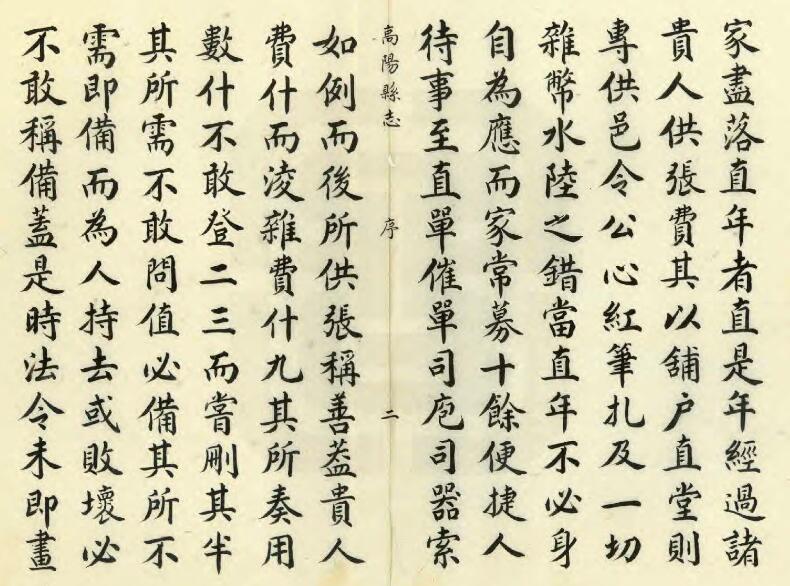 家盡落直年者直是年經過諸
貴人供張費其以舖户直堂則
專供邑令公心紅筆扎及一切
雜幣水陸之錯當直年不必身
自為應而家常募十餘便捷人
待事至直單催單司庖司器索
高陽縣志 序 二
如例而後所供張稱善葢貴人
費什而淩雜費什九其所奏用
數什不敢登二三而嘗刪其半
其所需不敢問值必備其所不
需即備而為人持去或敗壞必
不敢稱備蓋是時法令未即畫